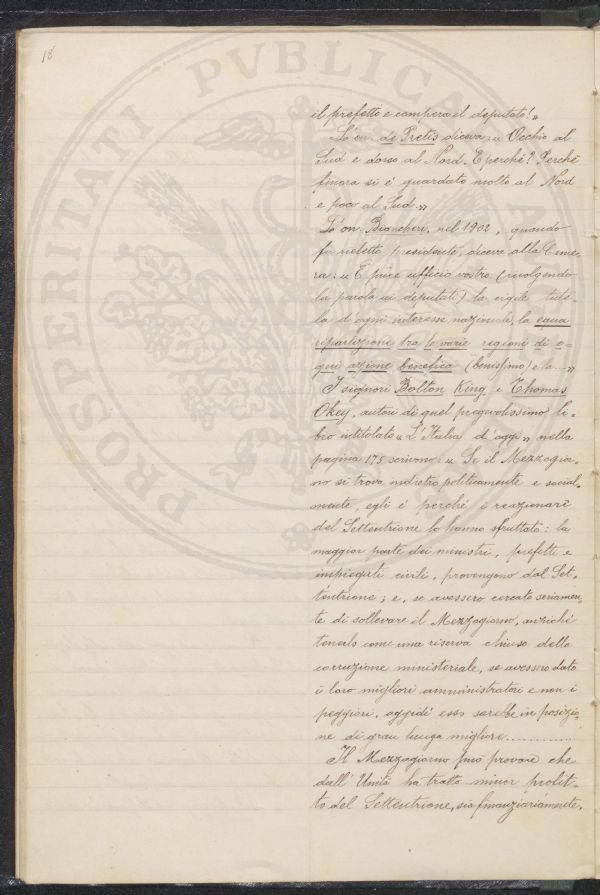 18
il prefetto e compera il deputato!»
L'on. de Pretis diceva: « Occhio al
Sud e dorso al Nord. E perché? Perché
finora si é guardato molto al Nord
e poco al Sud.»
L'on. Biancheri, nel 1902, quando
fu rieletto presidente, diceva alla Came-
ra: « È pure ufficio vostro (rivolgendo
la parola ai deputati) la vigile tute-
la d'ogni interesse nazionale, la equa
ripartizione tra le varie regioni di o-
gni azione benefica (benissimo) e la ...»
I signori Bolton King e Thomas
Okey, autori di quel pregevolissimo li-
bro intitolato « L'Italia d'oggi» nella
pagina 175 scrivono: « Se il Mezzogior-
no si trova indietro politicamente e social-
mente, egli é perché i reazionarî
del Settentrione lo hanno sfruttato: la
maggior parte dei ministri, prefetti e
impiegati civili, provengono dal Set-
tentrione; e, se avessero cercato seriamen-
te di sollevare il Mezzogiorno, anziché
tenerlo come una riserva chiusa della
corruzione ministeriale, se avessero dato
i loro migliori amministratori e non i
peggiori, oggidí esso sarebbe in posizio-
ne di gran lunga migliore............
Il Mezzogiorno può provare che
dall'Unità ha tratto minor profit-
to del Settentrione, sia finanziariamente,
PROSPERITATI PVBLICAE